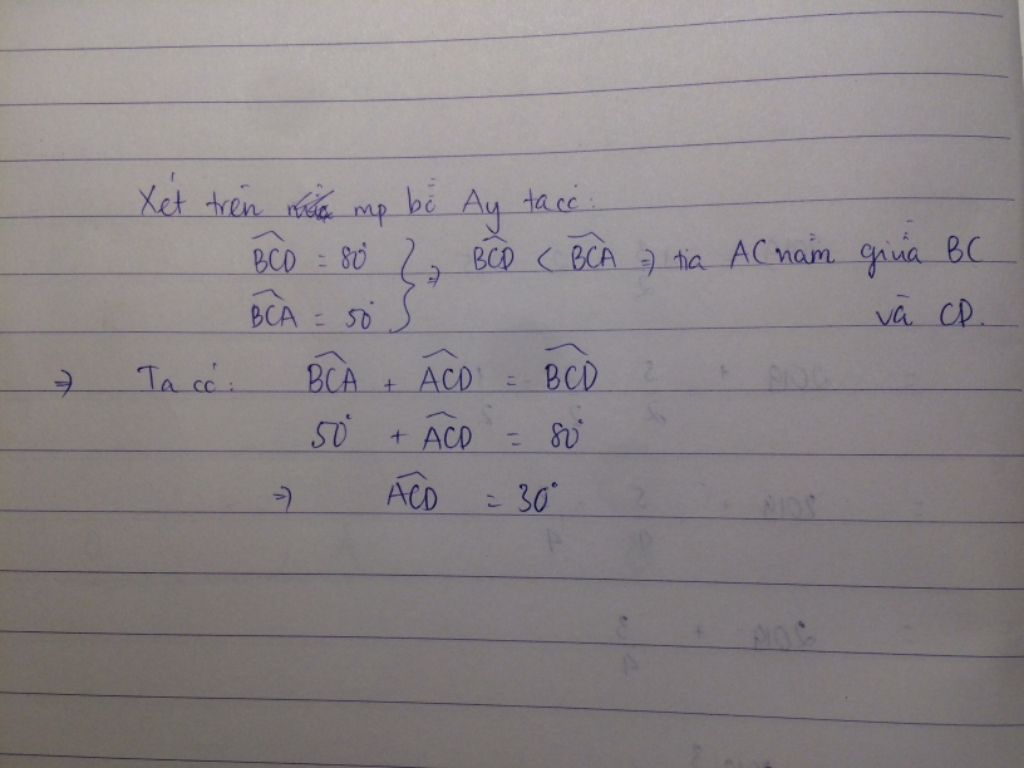 Xét trên mp bờ Ay ta có:
BCD = 80° } ⇒ BCD < BCA ⇒ tia AC nằm giữa BC
BCA = 50° và CD.
⇒ Ta có: BCA + ACD = BCD
50° + ACD = 80°
⇒ ACD = 30°